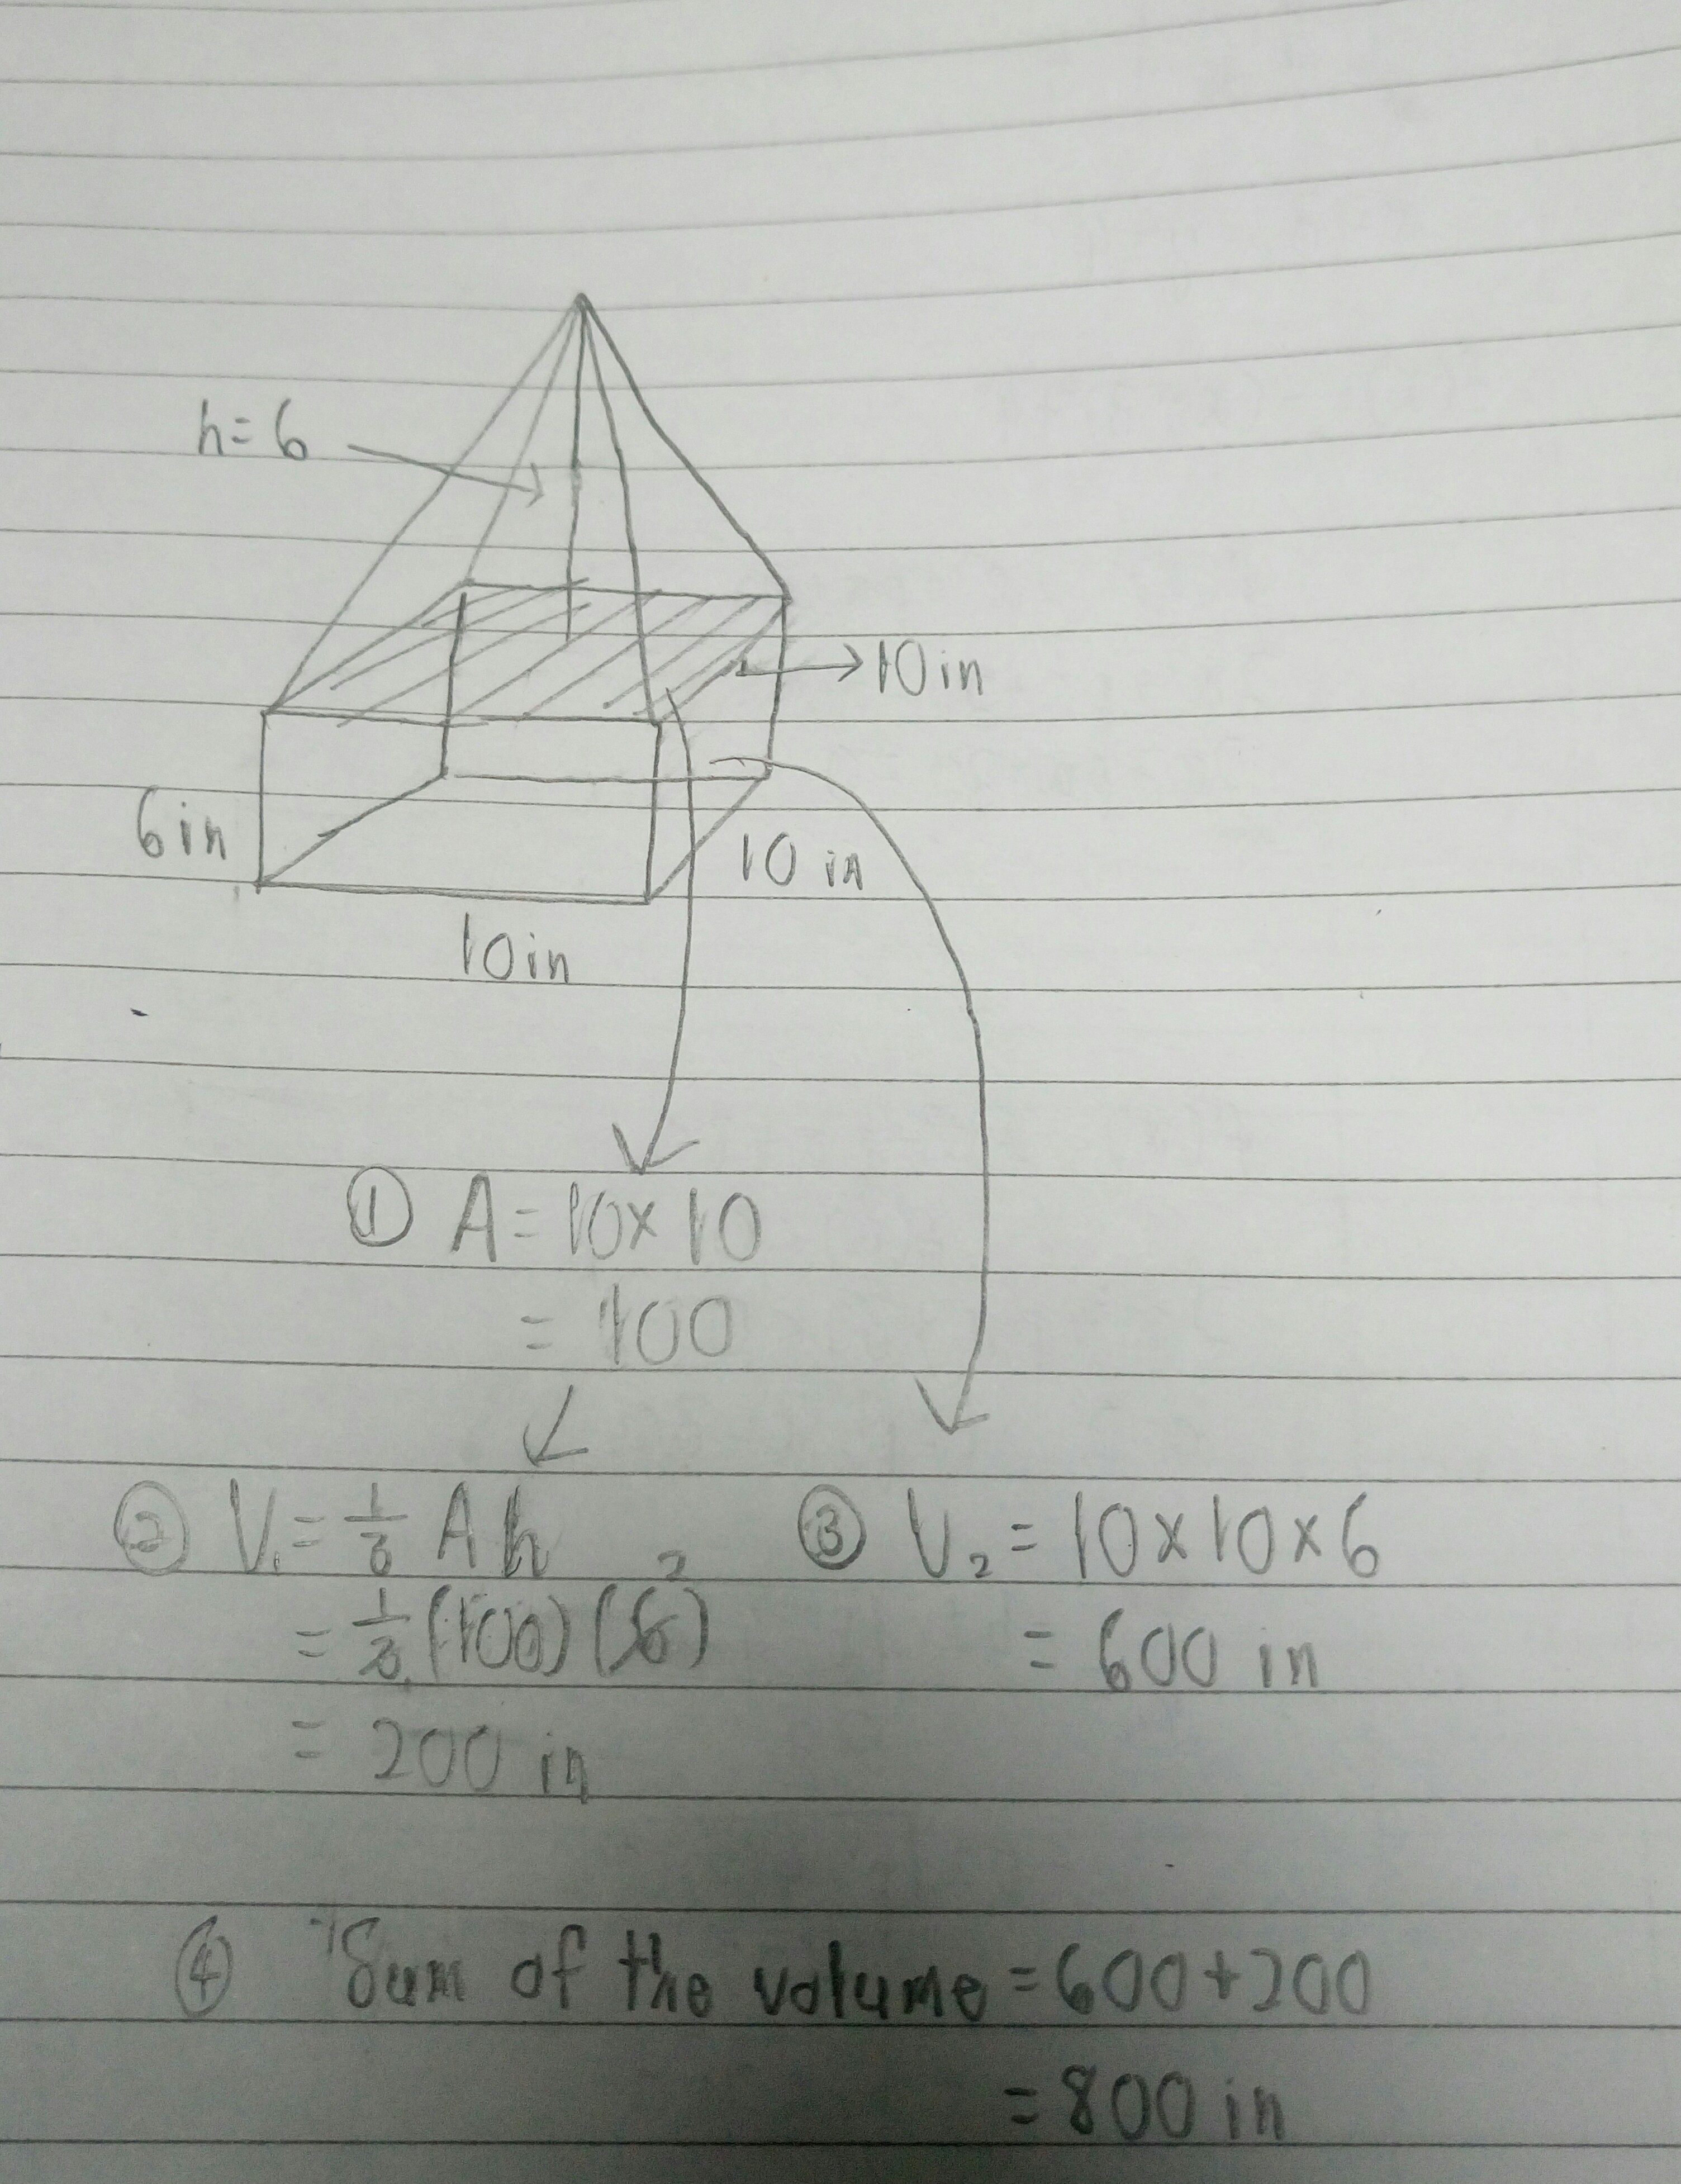 h=6
10in
6in
10 in
10in
① A=10×10
=100
② V₁=1/3 Ah
=1/3(100)(6)²
=200 in
③ V₂=10×10×6
=600 in
④ Sum of the volume=600+200
=800 in